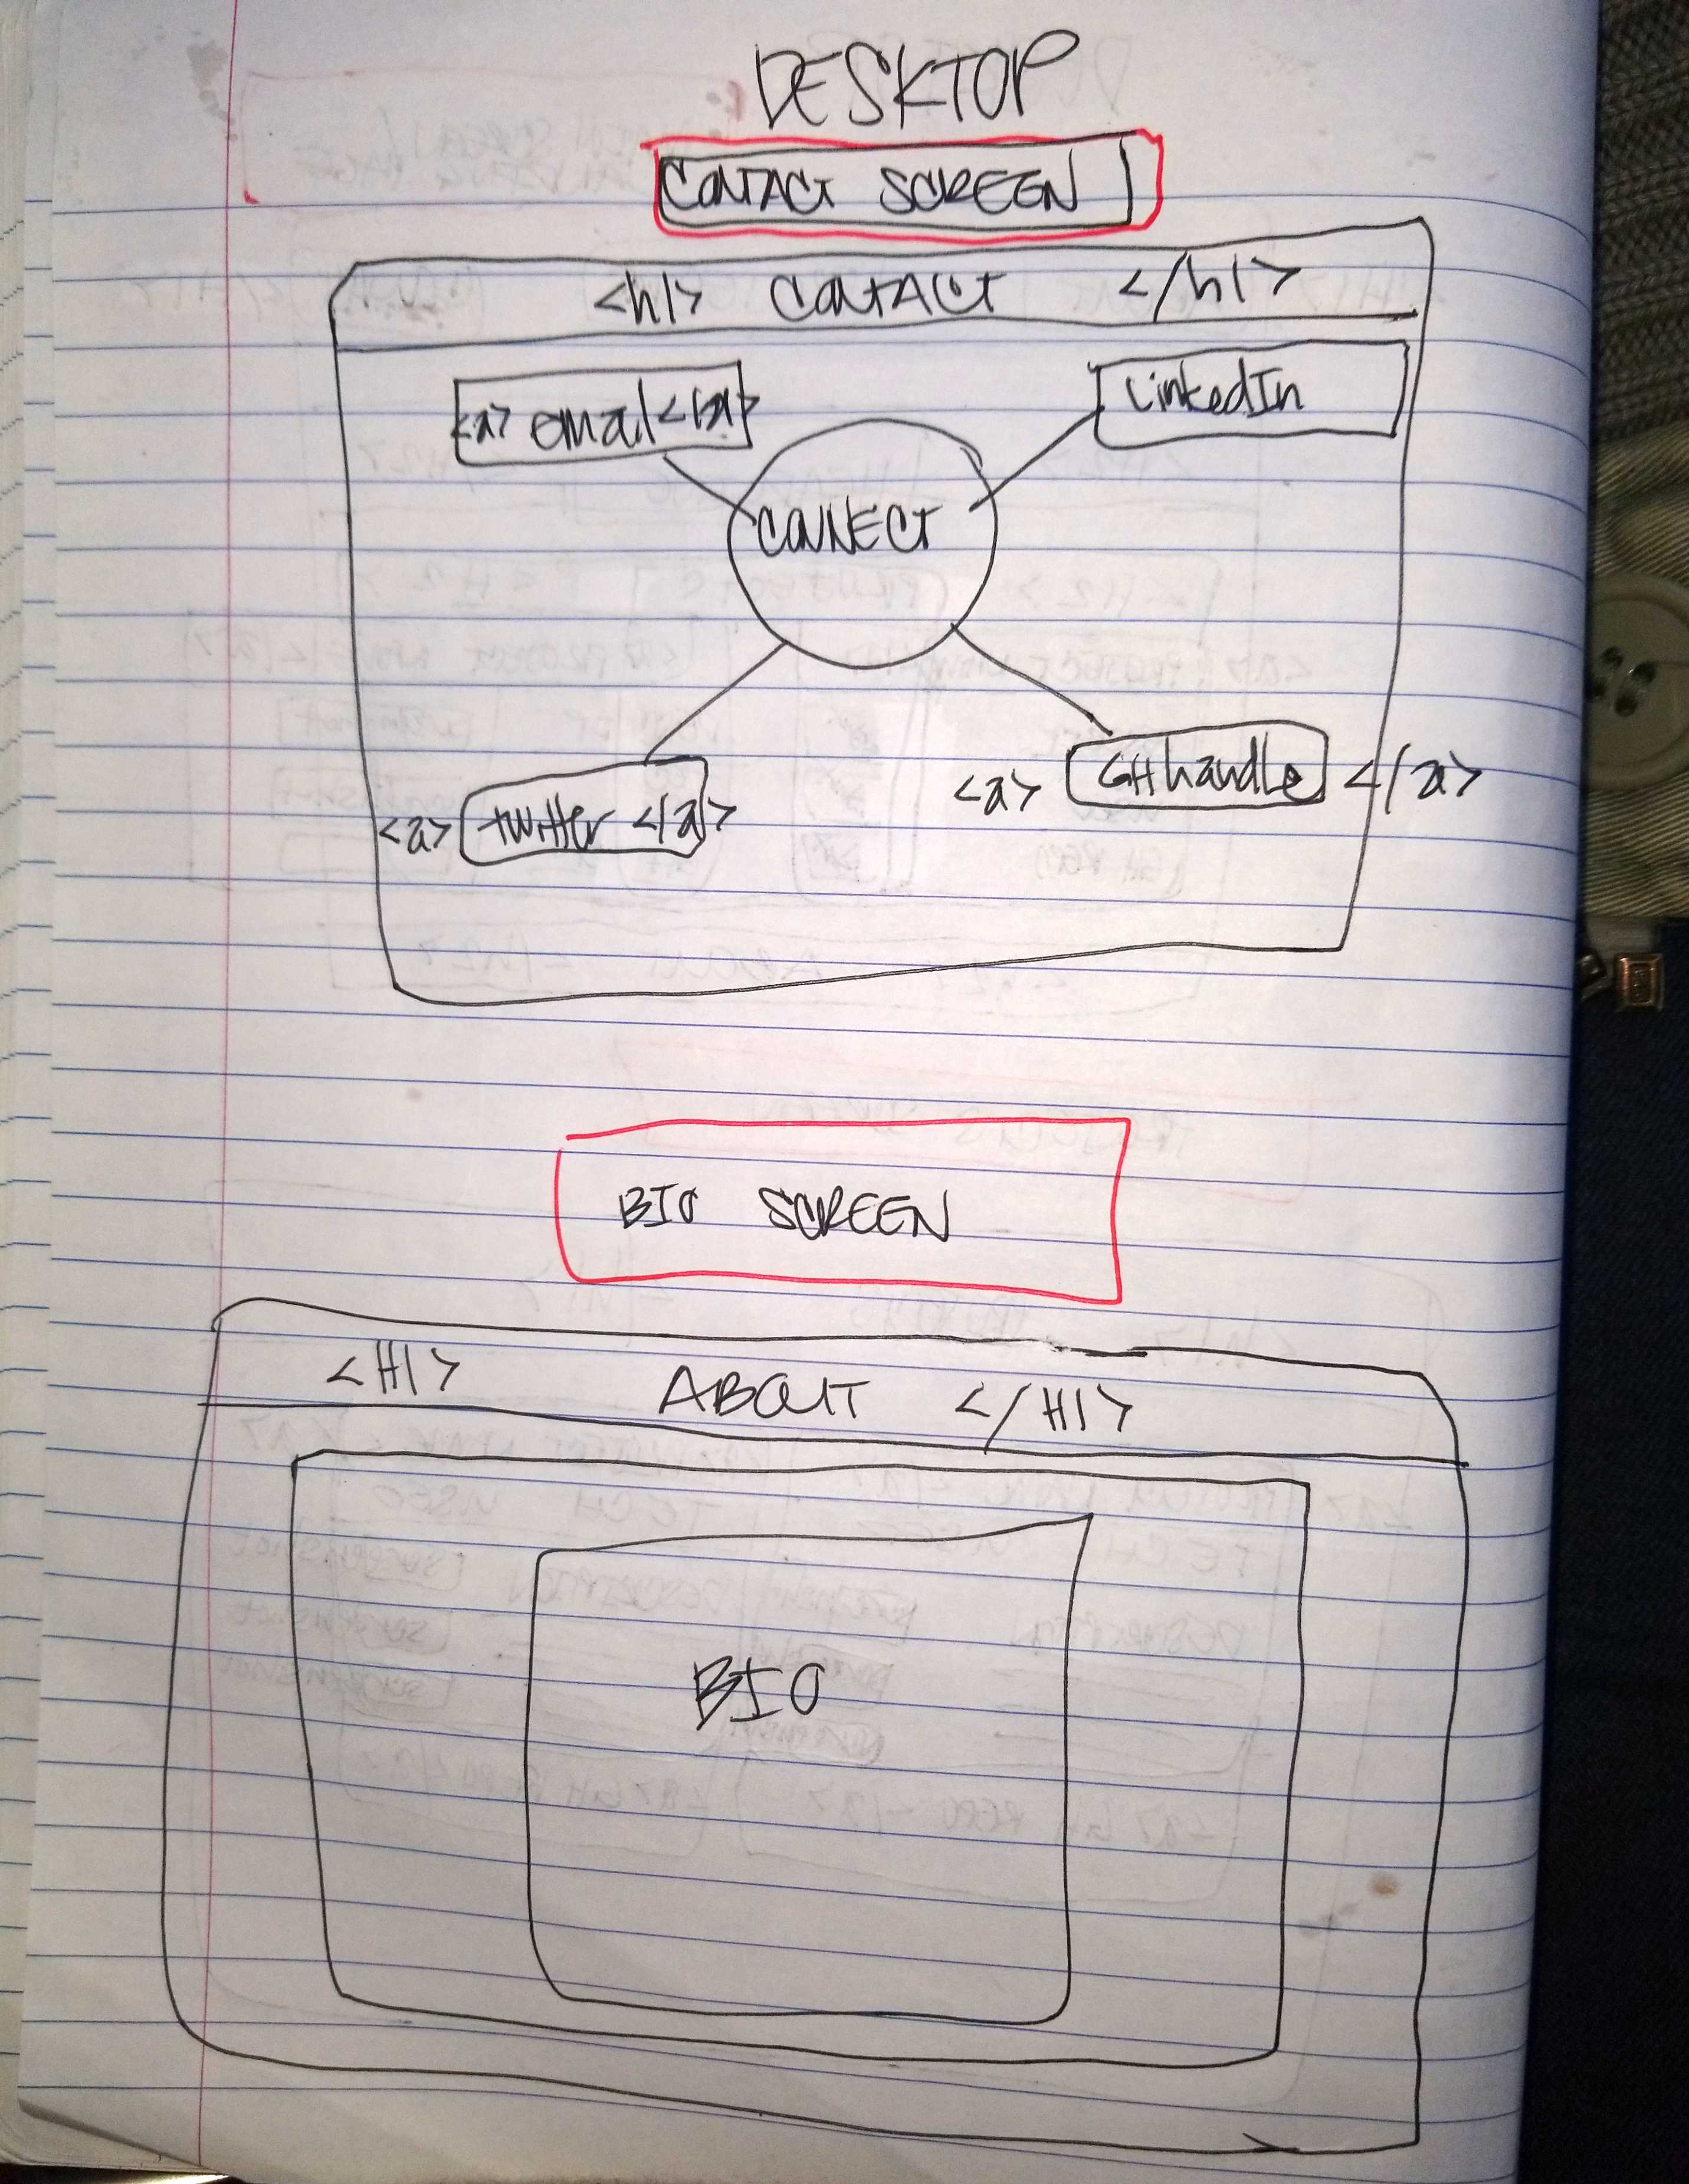 DESKTOP
CONTACT SCREEN
<h1> CONTACT </h1>
<a> email </a>
LinkedIn
CONNECT
<a> twitter </a>
<a> GH handle </a>
BIO SCREEN
<H1> ABOUT </H1>
BIO